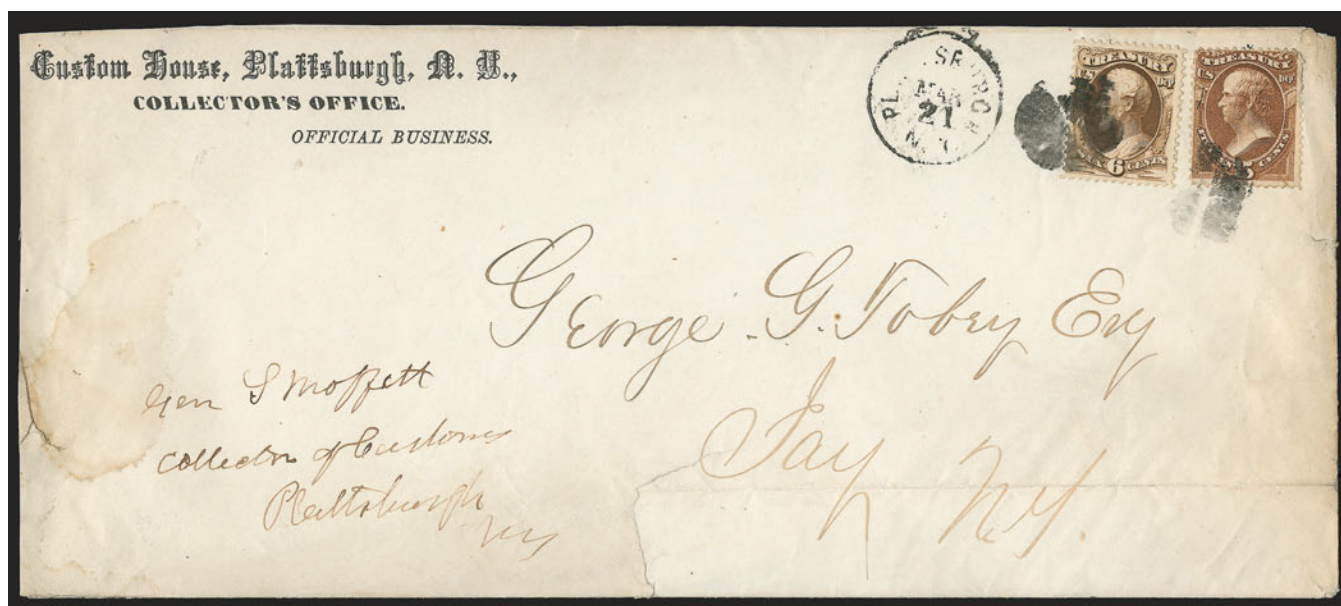 Custom House, Plattsburgh, N. Y.,
COLLECTOR'S OFFICE.
OFFICIAL BUSINESS.
MAR
21
N.Y.
TREASURY
U.S. DEP.
SIX 6 CENTS
TREASURY
U.S. DEP.
CENTS
George G. Tobey Esq
Jay
N.Y.
Gen S Moffett
Collector of Customs
Plattsburgh
NY